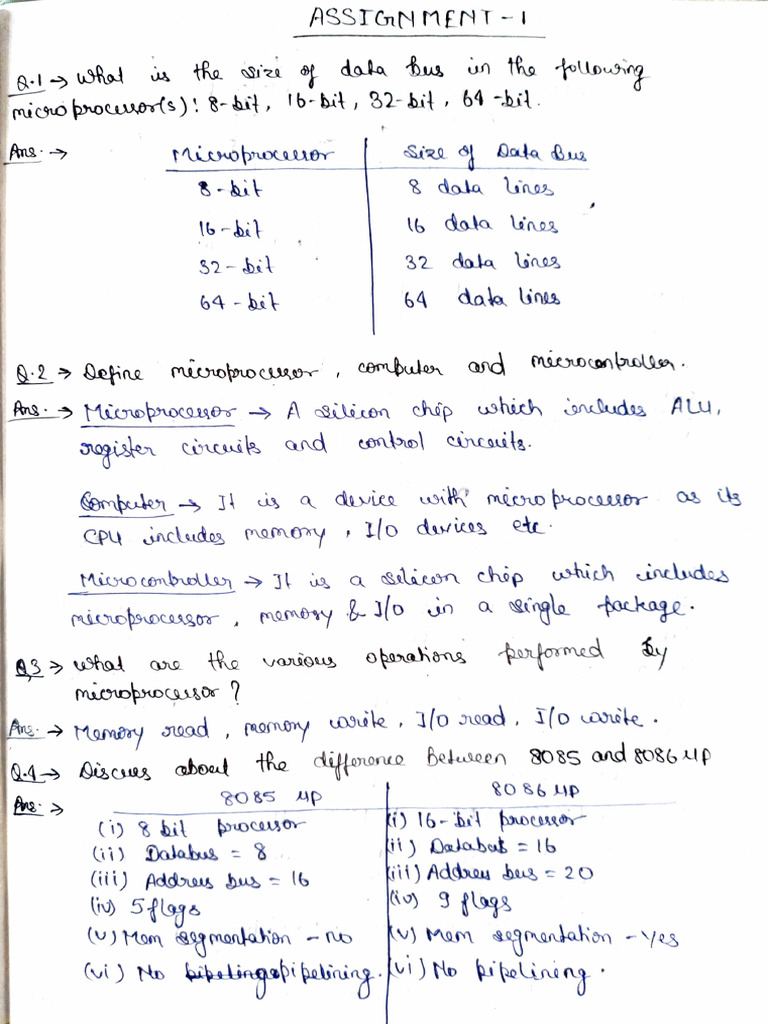 ASSIGNMENT-1
Q.1 → What is the size of data Bus in the following
microprocessor(s): 8-bit, 16-bit, 32-bit, 64-bit.
Ans. → Microprocessor Size of Data Bus
8-bit 8 data lines
16-bit 16 data lines
32-bit 32 data lines
64-bit 64 data lines
Q.2 → Define microprocessor, computer and microcontroller.
Ans. → Microprocessor → A silicon chip which includes ALU,
register circuits and control circuits.
Computer → It is a device with microprocessor as its
CPU includes memory, I/O devices etc.
Microcontroller → It is a silicon chip which includes
microprocessor, memory & I/O in a single package.
Q3 → What are the various operations performed by
microprocessor?
Ans. → Memory read, memory write, I/O read, I/O write.
Q.4 → Discues about the difference Between 8085 and 8086 μP
Ans. → 8085 μP 8086 μP
(i) 8 bit processor (i) 16-bit processor
(ii) Databus = 8 (ii) Databus = 16
(iii) Address bus = 16 (iii) Address bus = 20
(iv) 5 flags (iv) 9 flags
(v) Mem segmentation - no (v) Mem segmentation - yes
(vi) No pipelining. (vi) No pipelining.